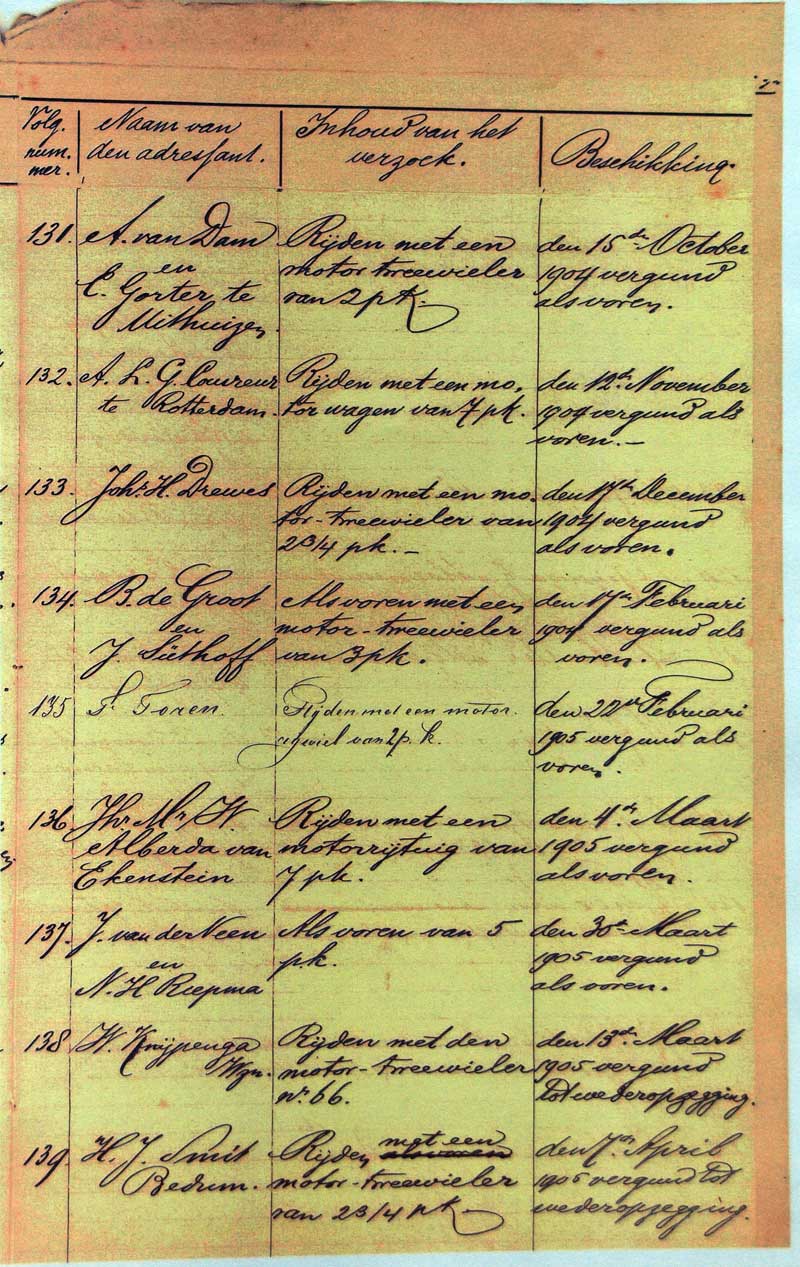 Volg. num. mer.
Naam van den adressant.
Inhoud van het verzoek.
Beschikking.
131. A. van Dam Rijden met een den 15de October
en motor-tweewieler 1904 vergund
C. Gorter te van 2 pk. als voren.
Uithuizen
132. A. L. G. Coureur Rijden met een mo- den 12de November
te Rotterdam. tor wagen van 7 pk. 1904 vergund als
voren.-
133. Johs. H. Drewes Rijden met een mo- den 17de December
tor-tweewieler van 1904 vergund
2 3/4 pk.- als voren.
134. B. de Groot Als voren met een den 17de Februari
en motor-tweewieler 1904 vergund als
J. Süthoff van 3 pk. voren.
135 F. Toren. Rijden met een motor- den 22de Februari
rijwiel van 2 p. k. 1905 vergund als
voren.
136 Jhr. Mr. W. Rijden met een den 4de Maart
Alberda van motorrijtuig van 1905 vergund
Ekenstein 7 pk. als voren.
137. J. van der Veen Als voren van 5 den 30st Maart
en p.k. 1905 vergund
N. H. Riepma als voren.
138 W. Knijpenga Rijden met den den 13de Maart
Wzn. motor-tweewieler 1905 vergund
no. 66. tot wederopzegging.
139. H. J. Smit Rijden met een den 7den April
Bedum. motor-tweewieler 1905 vergund tot
van 2 3/4 pk. wederopzegging.